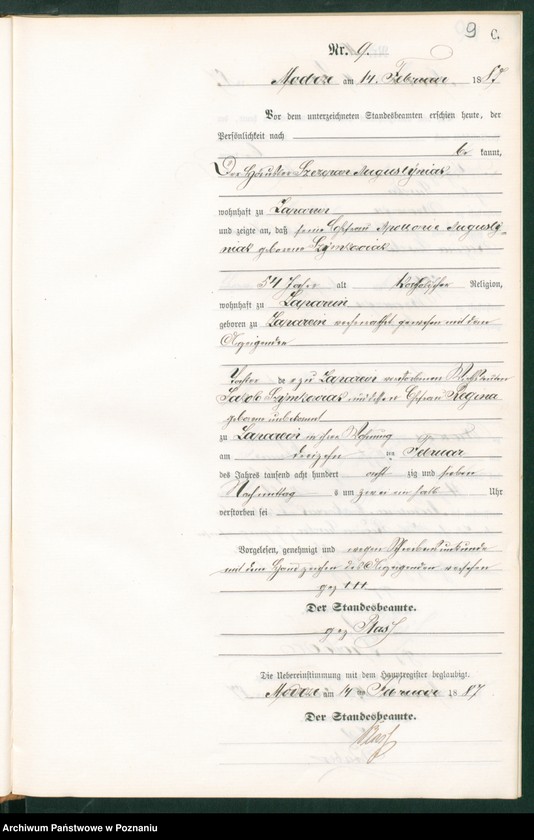 9 C.
Nr. 9.
Modrze am 14. Februar 1887
Vor dem unterzeichneten Standesbeamten erschien heute, der
Persönlichkeit nach
be kannt,
Der Häusler Augustyniak
wohnhaft zu
und zeigte an, daß seine Ehefrau Apollonie Augusty-
niak geborene Szymkowiak
54 Jahr alt katholischer Religion,
wohnhaft zu
geboren zu verheirathet gewesen mit dem
Anzeigenden
Tochter de s zu verstorbenen
Jakob Szymkowiak und dessen Ehefrau Regina
geborene unbekannt
zu in ihrer Wohnung
am dreizehn ten Februar
des Jahres tausend acht hundert acht zig und sieben
Nachmittag s um zwei ein halb Uhr
verstorben sei
Vorgelesen, genehmigt und wegen Schreibensunkunde
mit dem Handzeichen des Anzeigenden versehen
gez +++
Der Standesbeamte.
gez
Die Uebereinstimmung mit dem Hauptregister beglaubigt.
Modrze am 14 ten Februar 1887
Der Standesbeamte.
Archiwum Państwowe w Poznaniu